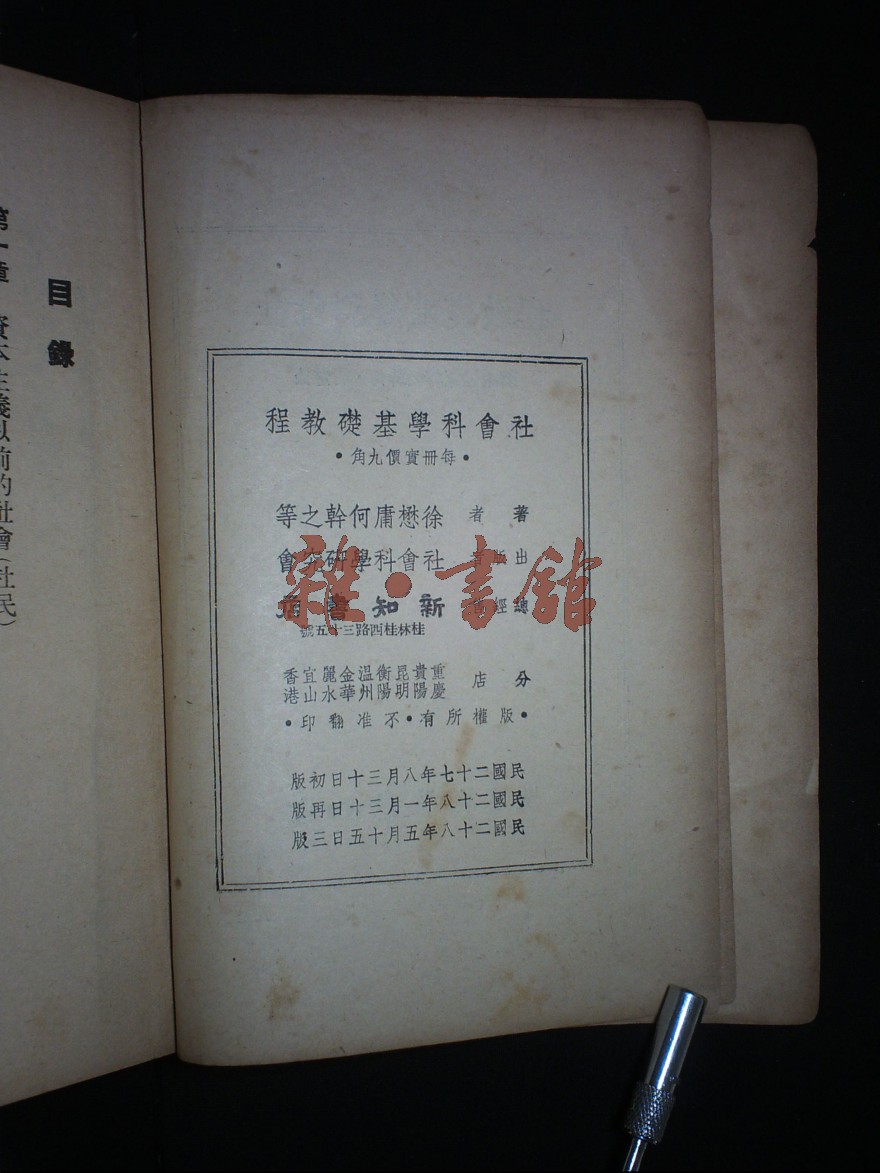 社會科學基礎教程
•每冊實價九角•
著者 徐懋庸何幹之等
出版者 社會科學研究會
總經售 新知書店
桂林桂西路三十五號
分店 重慶 貴陽 昆明 衡陽 溫州 金華 麗水 宜山 香港
•版權所有•不准翻印•
民國二十七年八月三十日初版
民國二十八年一月三十日再版
民國二十八年五月十五日三版
目錄
第一章 資本主義以前的社會(社民)
雜•書館